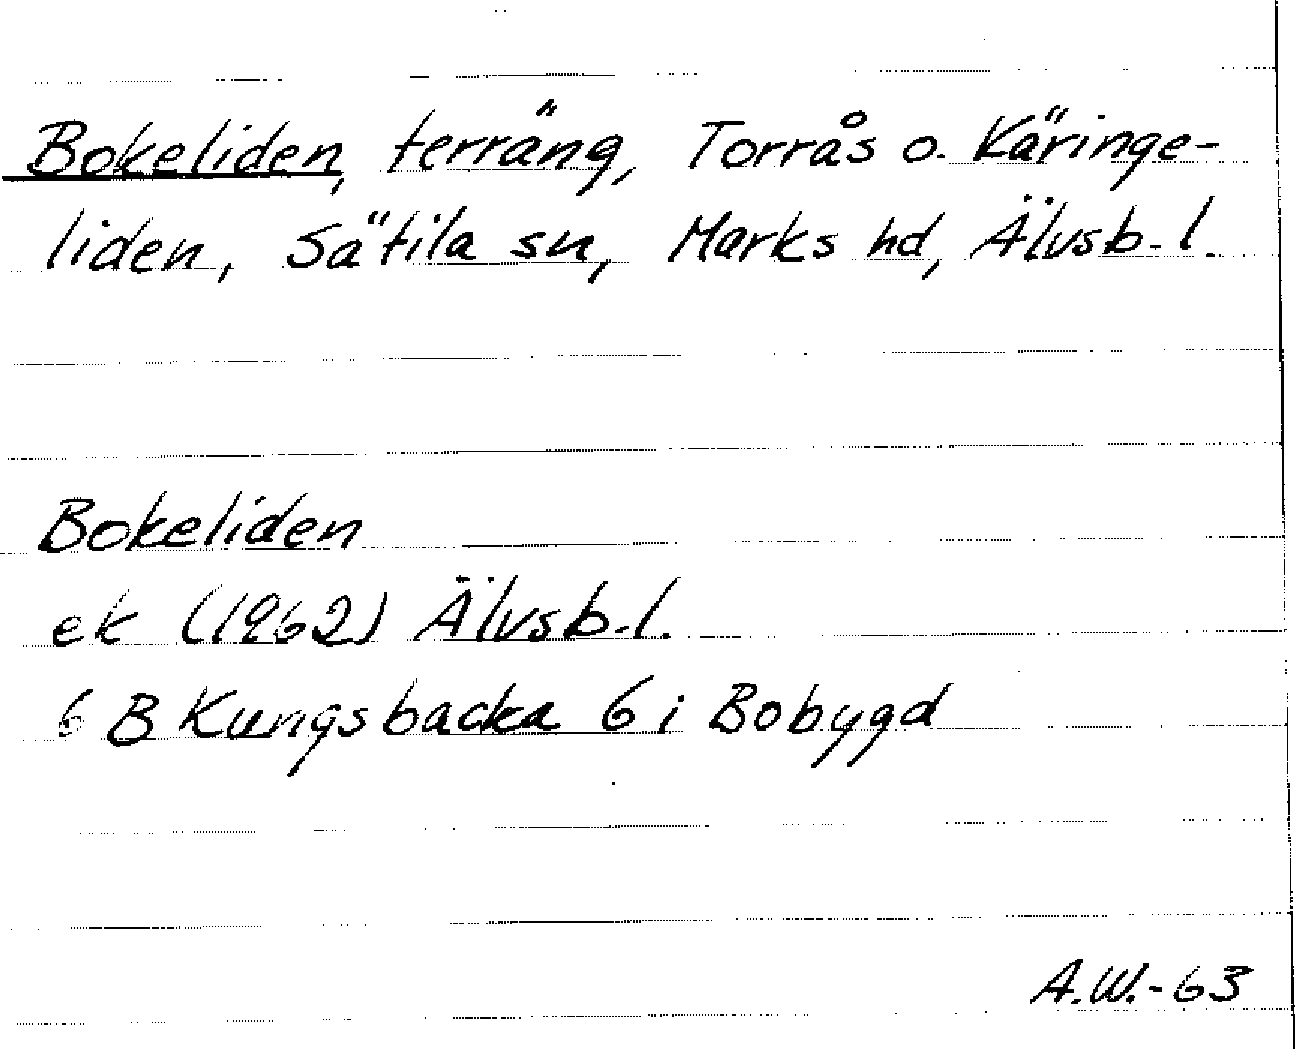 Bokeliden, terräng, Torrås o. Käringe-
liden, Sätila sn, Marks hd, Älvsb. l.
Bokeliden
ek (1962) Älvsb. l.
6 B Kungsbacka 6 i Bobygd
A.W.-63